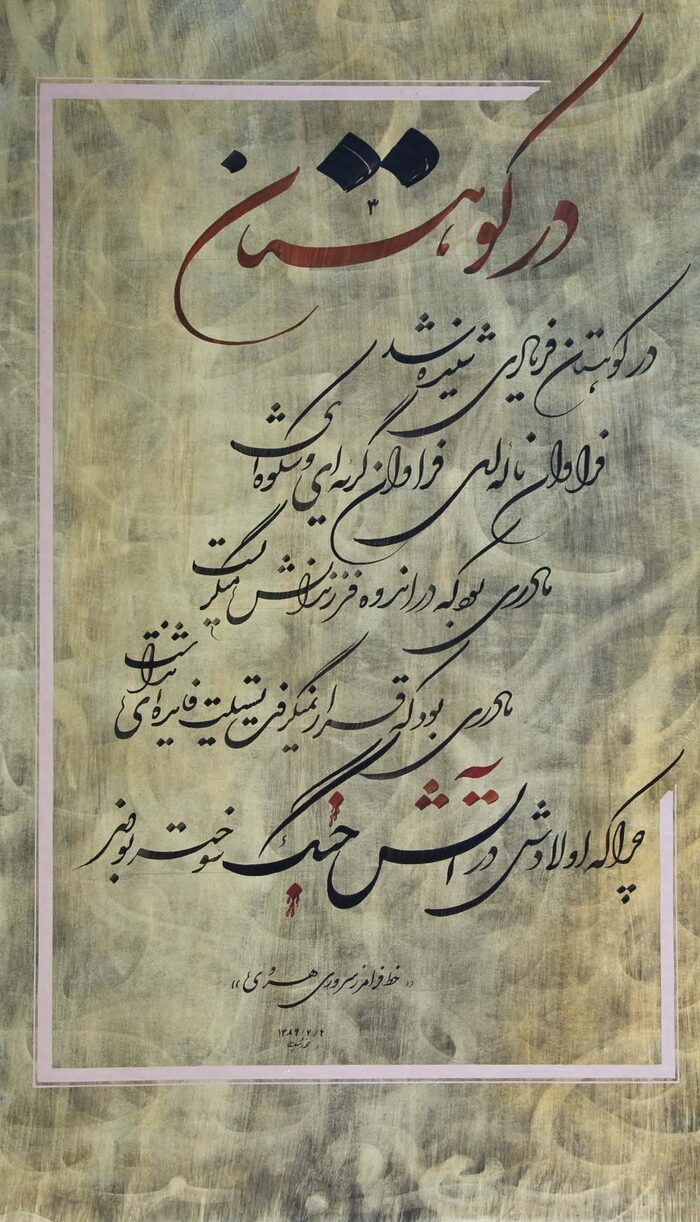 در کوهستان
۳
در کوهستان فریادی شنیده شد
فراوان ناله‌ای فراوان گریه‌ای و شکوه‌ای
مادری بود که در اندوه فرزندانش میگریست
مادری بود که قرار نمیگرفت تسلیت فایده‌ای نداشت
چرا که اولادش در آتش جنگ سوخته بودند
«خط فرامرز سروری هروی»
۱۳۸۹/۷/۲